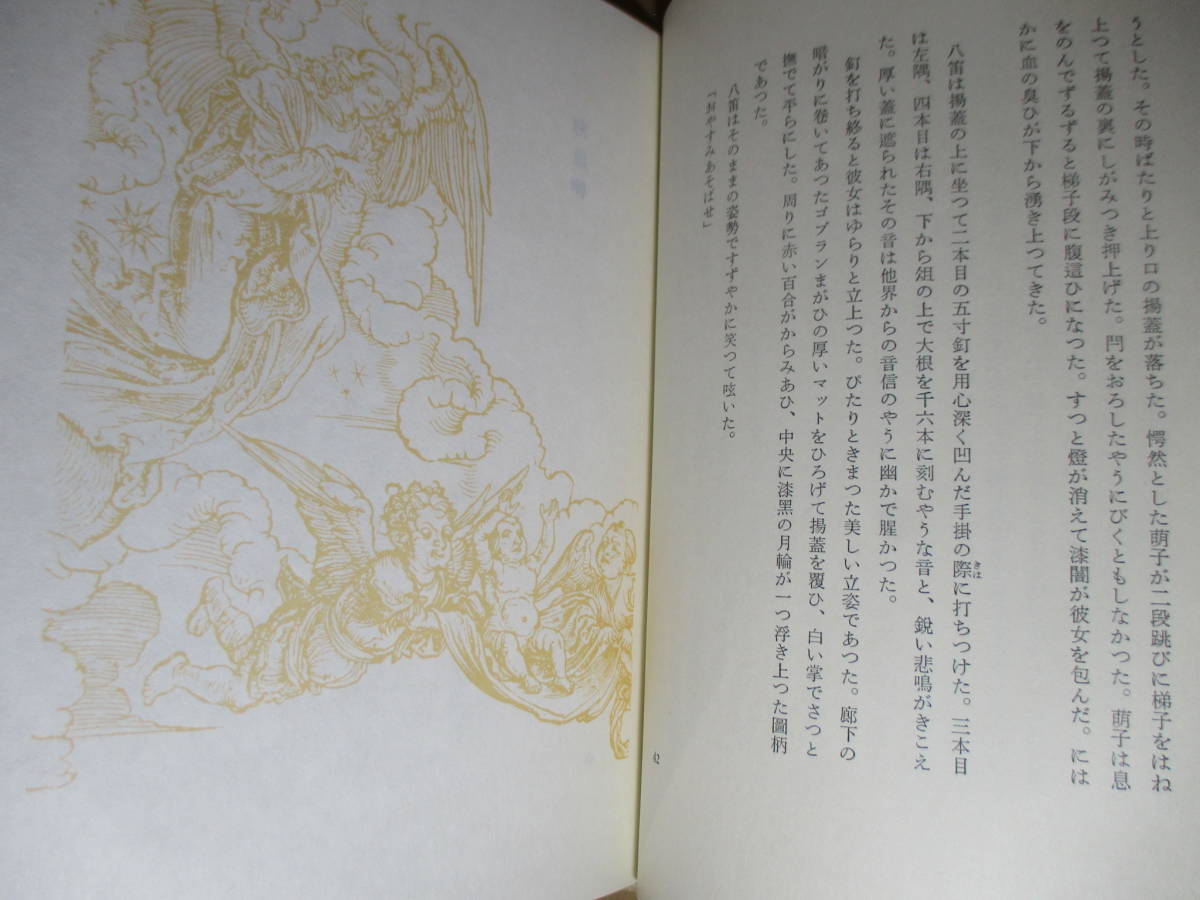 うとした。その時ばたりと上り口の揚蓋が落ちた。愕然とした萌子が二段跳びに梯子をはね
上つて揚蓋の裏にしがみつき押上げた。閂をおろしたやうにびくともしなかつた。萌子は息
をのんでずるずると梯子段に腹這ひになつた。すつと燈が消えて漆闇が彼女を包んだ。には
かに血の臭ひが下から湧き上つてきた。
八笛は揚蓋の上に坐つて二本目の五寸釘を用心深く凹んだ手掛の際に打ちつけた。三本目
きは
は左隅、四本目は右隅、下から俎の上で大根を千六本に刻むやうな音と、鋭い悲鳴がきこえ
た。厚い蓋に遮られたその音は他界からの音信のやうに幽かで腥かつた。
釘を打ち終ると彼女はゆらりと立上つた。ぴたりときまつた美しい立姿であつた。廊下の
暗がりに卷いてあつたゴブランまがひの厚いマットをひろげて揚蓋を覆ひ、白い掌でさつと
撫でて平らにした。周りに赤い百合がからみあひ、中央に漆黑の月輪が一つ浮き上つた圖柄
であつた。
八笛はそのままの姿勢ですずやかに笑つて呟いた。
「おやすみあそばせ」
42